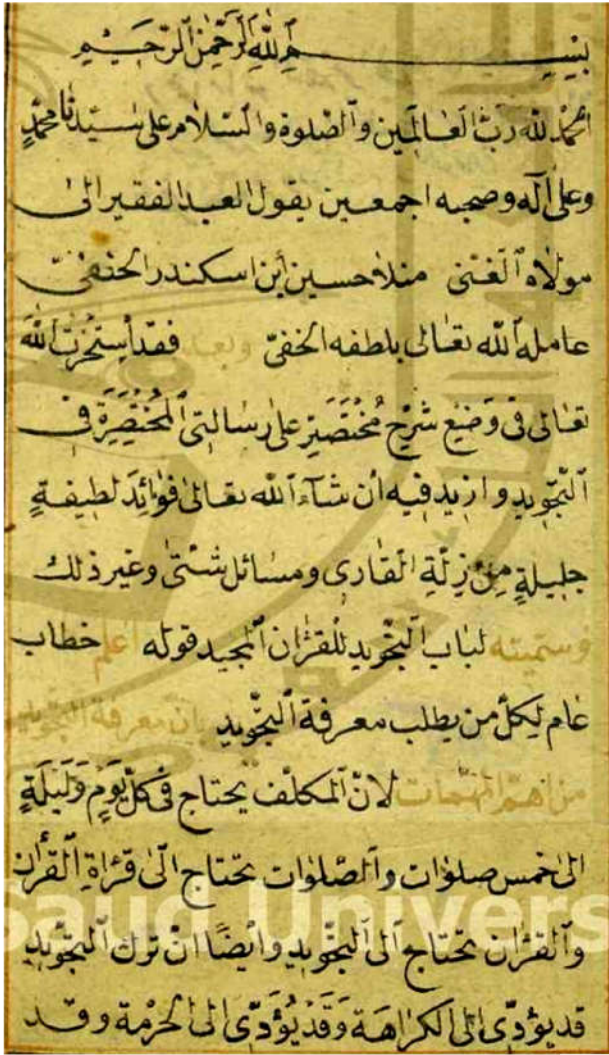 بسم الله الرحمن الرحيم
الحمد لله رب العالمين والصلوة والسلام على سيدنا محمد
وعلى آله وصحبه اجمعين يقول العبد الفقير الى
مولاه الغنى منلا حسين ابن اسكندر الحنفى
عامله الله تعالى بلطفه الخفى وبعد فقد استخرت الله
تعالى فى وضع شرح مختصر على رسالتى المختصرة فى
التجويد وازيد فيه ان شآء الله تعالى فوائد لطيفة
جليلة من زلة القارى ومسائل شتى وغير ذلك
وسميته لباب التجويد للقرآن المجيد قوله اعلم خطاب
عام لكل من يطلب معرفة التجويد بان معرفة التجويد
من اهم المهمات لان المكلف يحتاج فى كل يوم وليلة
الى خمس صلوات والصلوات تحتاج الى قراة القرآن
والقرآن تحتاج الى التجويد وايضا ان ترك التجويد
قد يؤدى الى الكراهة وقد يؤدى الى الحرمة وقد
Saud Univers